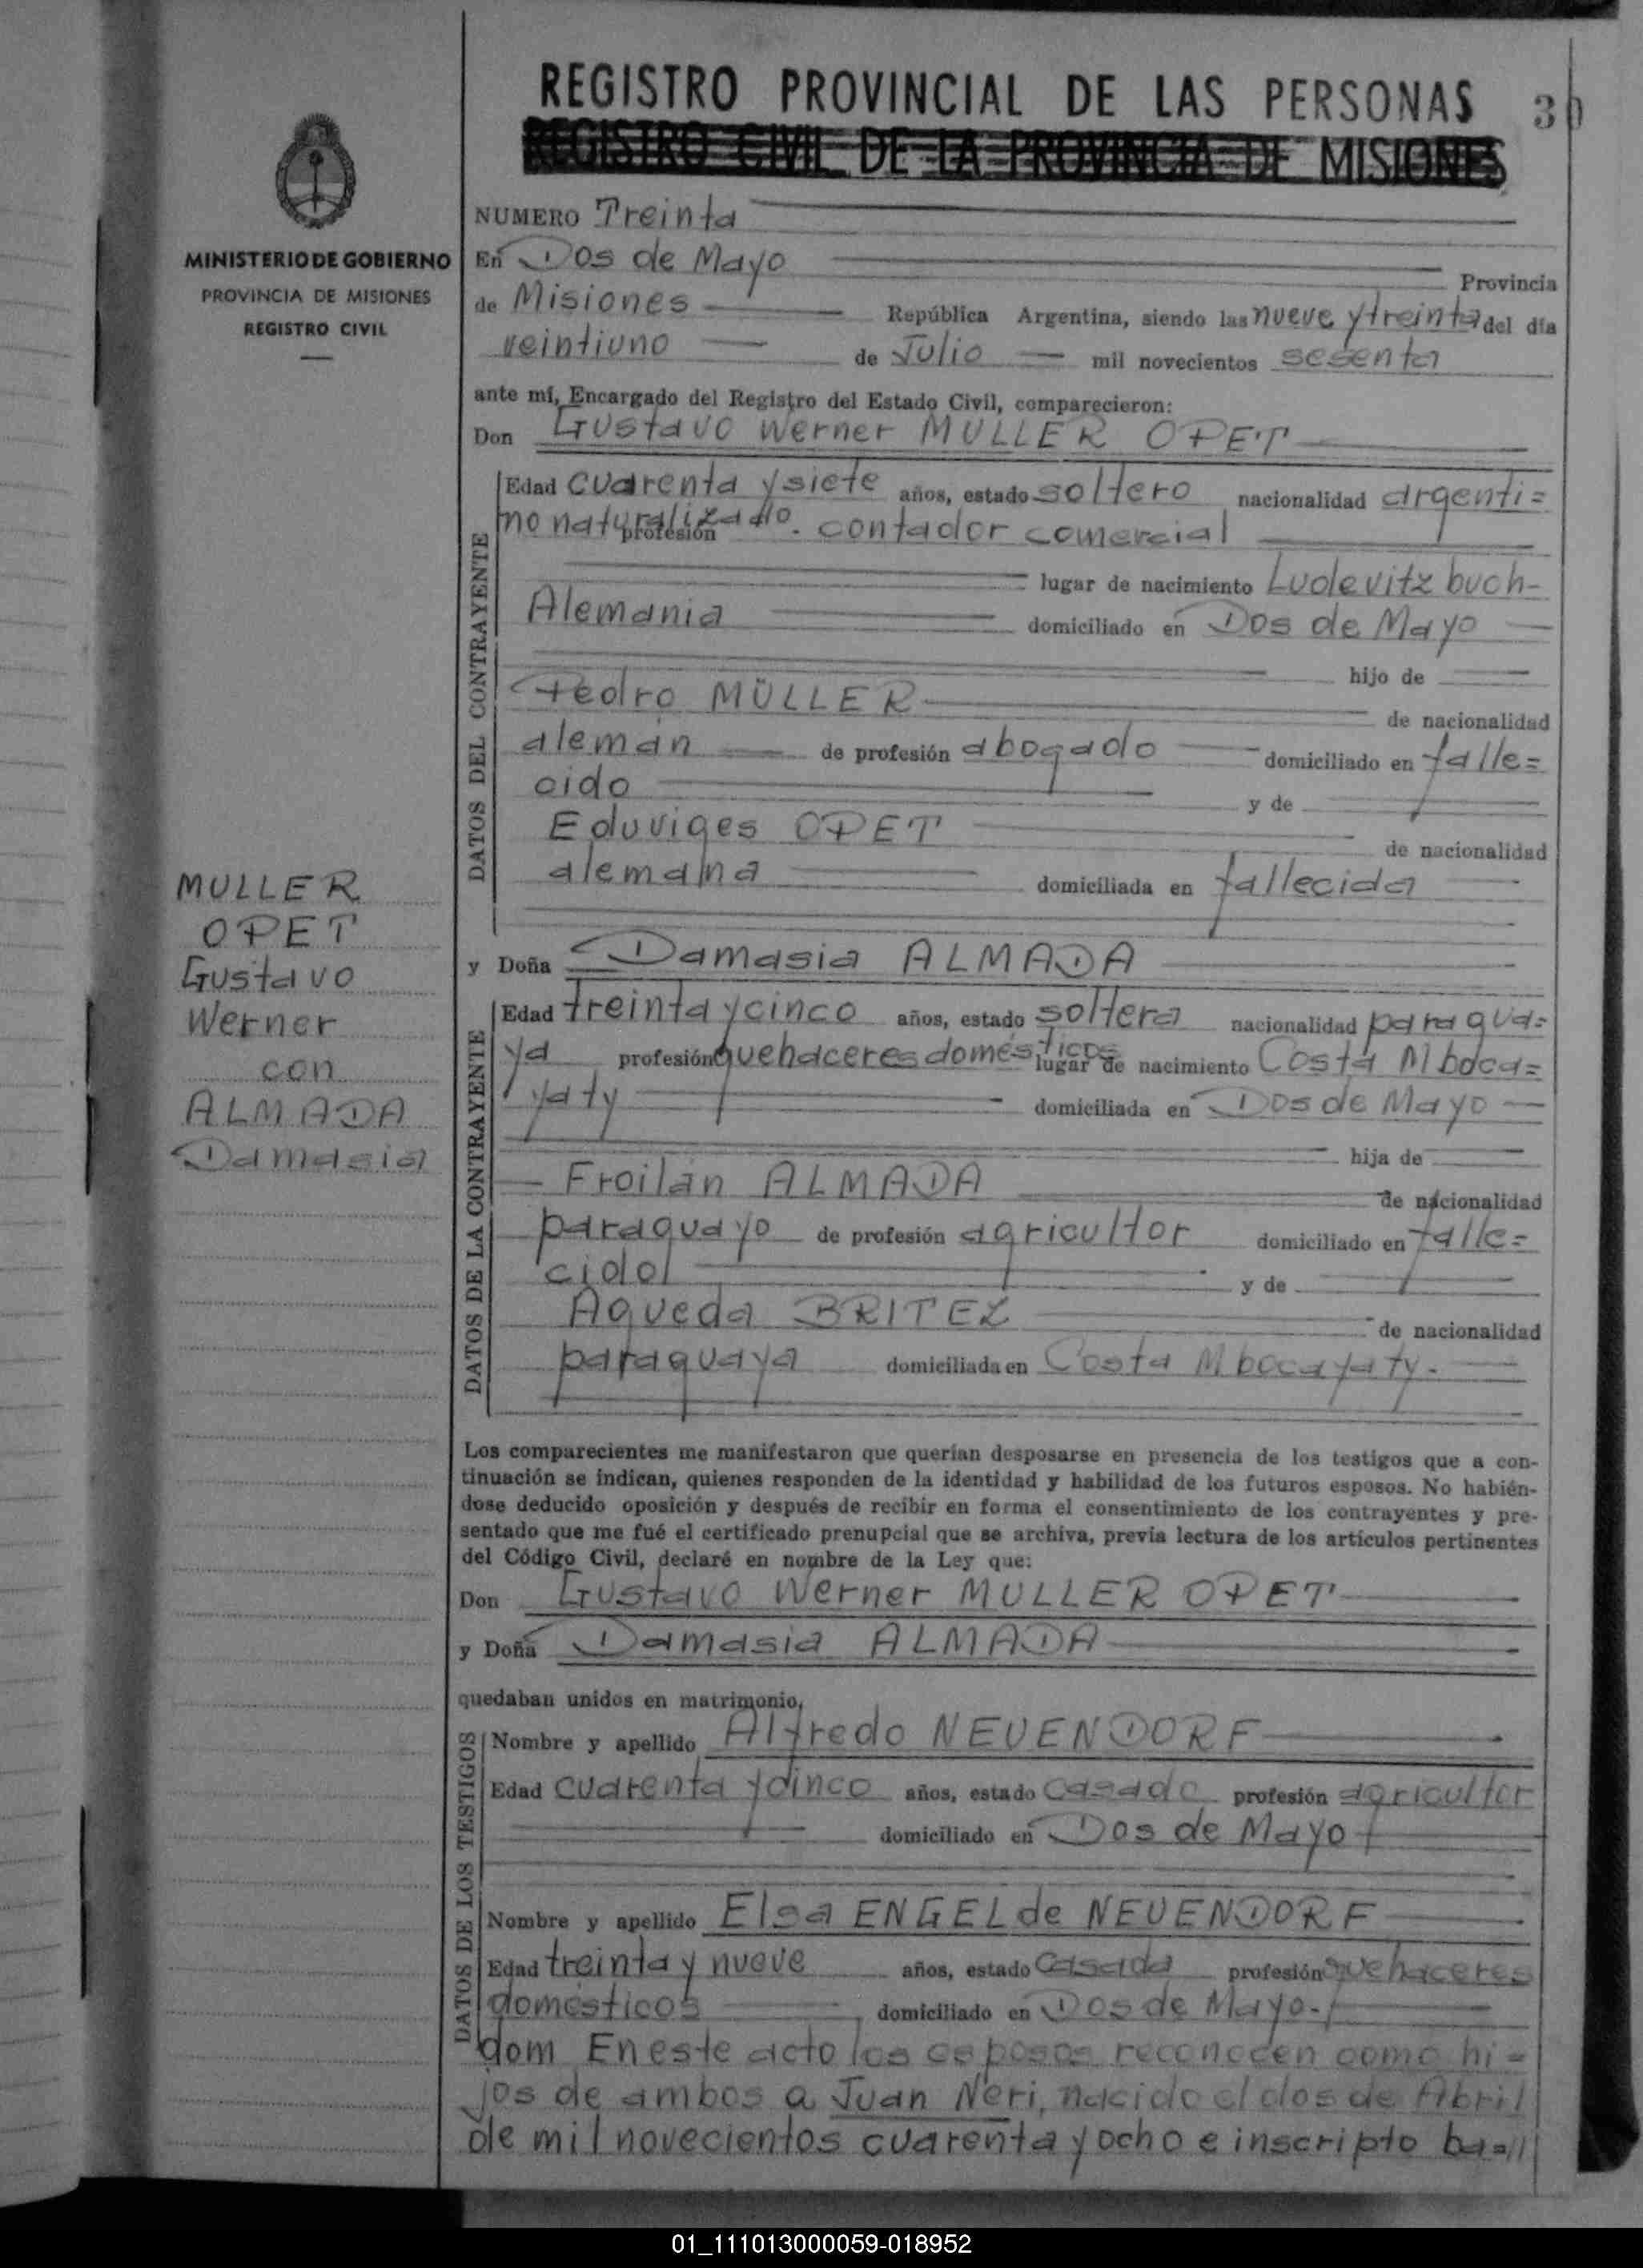 REGISTRO PROVINCIAL DE LAS PERSONAS 30
REGISTRO CIVIL DE LA PROVINCIA DE MISIONES
MINISTERIO DE GOBIERNO
PROVINCIA DE MISIONES
REGISTRO CIVIL
NUMERO Treinta
En Dos de Mayo Provincia
de Misiones República Argentina, siendo las nueve y treinta del día
veintiuno de Julio mil novecientos sesenta
ante mí, Encargado del Registro del Estado Civil, comparecieron:
Don Gustavo Werner MULLER OPET
DATOS DEL CONTRAYENTE
Edad cuarenta y siete años, estado soltero nacionalidad argenti=
no naturalizado. profesión contador comercial
lugar de nacimiento Ludevitzbuch-
Alemania domiciliado en Dos de Mayo
hijo de
Pedro MÜLLER de nacionalidad
alemán de profesión abogado domiciliado en falle=
cido y de
Eduviges OPET de nacionalidad
alemana domiciliada en fallecida
MULLER
OPET
Gustavo
Werner
con
ALMADA
Damasia
y Doña Damasia ALMADA
DATOS DE LA CONTRAYENTE
Edad treinta y cinco años, estado soltera nacionalidad paragua=
ya profesión quehaceres domésticos lugar de nacimiento Costa Mboca=
yaty domiciliada en Dos de Mayo
hija de
Froilán ALMADA de nacionalidad
paraguayo de profesión agricultor domiciliado en falle=
cido y de
Agueda BRITEZ de nacionalidad
paraguaya domiciliada en Costa Mbocayaty.
Los comparecientes me manifestaron que querían desposarse en presencia de los testigos que a con-
tinuación se indican, quienes responden de la identidad y habilidad de los futuros esposos. No habién-
dose deducido oposición y después de recibir en forma el consentimiento de los contrayentes y pre-
sentado que me fué el certificado prenupcial que se archiva, previa lectura de los artículos pertinentes
del Código Civil, declaré en nombre de la Ley que:
Don Gustavo Werner MULLER OPET
y Doña Damasia ALMADA
quedaban unidos en matrimonio,
DATOS DE LOS TESTIGOS
Nombre y apellido Alfredo NEUENDORF
Edad cuarenta y cinco años, estado casado profesión agricultor
domiciliado en Dos de Mayo
Nombre y apellido Elsa ENGEL de NEUENDORF
Edad treinta y nueve años, estado casada profesión quehaceres
domésticos domiciliado en Dos de Mayo.
dom En este acto los esposos reconocen como hi=
jos de ambos a Juan Neri, nacido el dos de Abril
de mil novecientos cuarenta y ocho e inscripto ba=
01_111013000059-018952